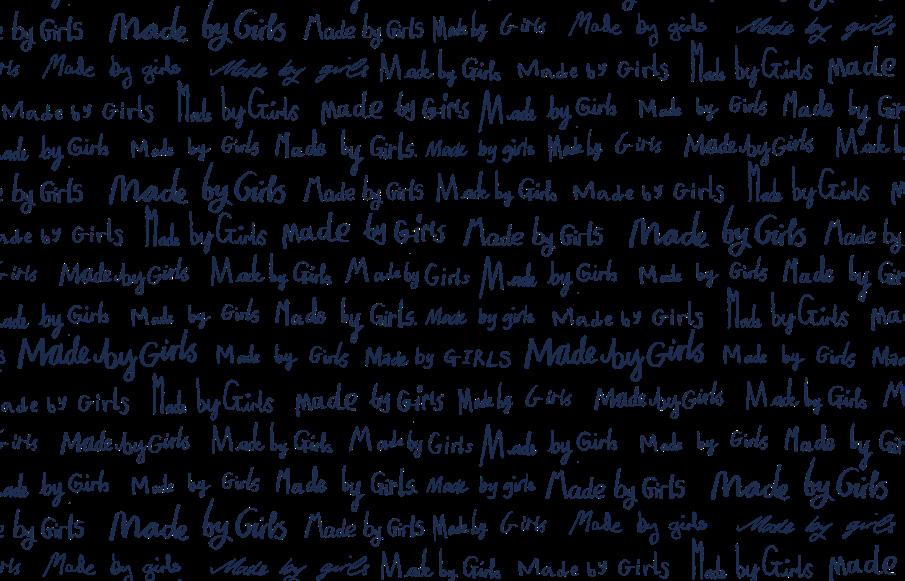 by Girls Made by Girls Made by Girls Made by Girls Made by girls Made by girls
Made by girls Made by girls Made by Girls Made by Girls Made by Girls Made
Made by Girls Made by Girls Made by Girls Made by Girls Made by Girls Made by
by Girls Made by Girls Made by Girls Made by girls Made by Girls Made by Girls Made
by Girls Made by Girls Made by Girls Made by Girls Made by Girls Made by Girls
by Girls Made by Girls Made by Girls Made by Girls Made by Girls Made by
Girls Made by Girls Made by Girls Made by Girls Made by Girls Made by Girls Made by
by Girls Made by Girls Made by Girls Made by girls Made by Girls Made by Girls
Made by Girls Made by Girls Made by GIRLS Made by Girls Made by Girls
by Girls Made by Girls Made by Girls Made by Girls Made by Girls Made by Girls
Girls Made by Girls Made by Girls Made by Girls Made by Girls Made by Girls Made by
by Girls Made by Girls Made by Girls Made by girls Made by Girls Made by Girls
by Girls Made by Girls Made by Girls Made by Girls Made by girls Made by girls
Made by girls Made by girls Made by Girls Made by Girls Made by Girls Made